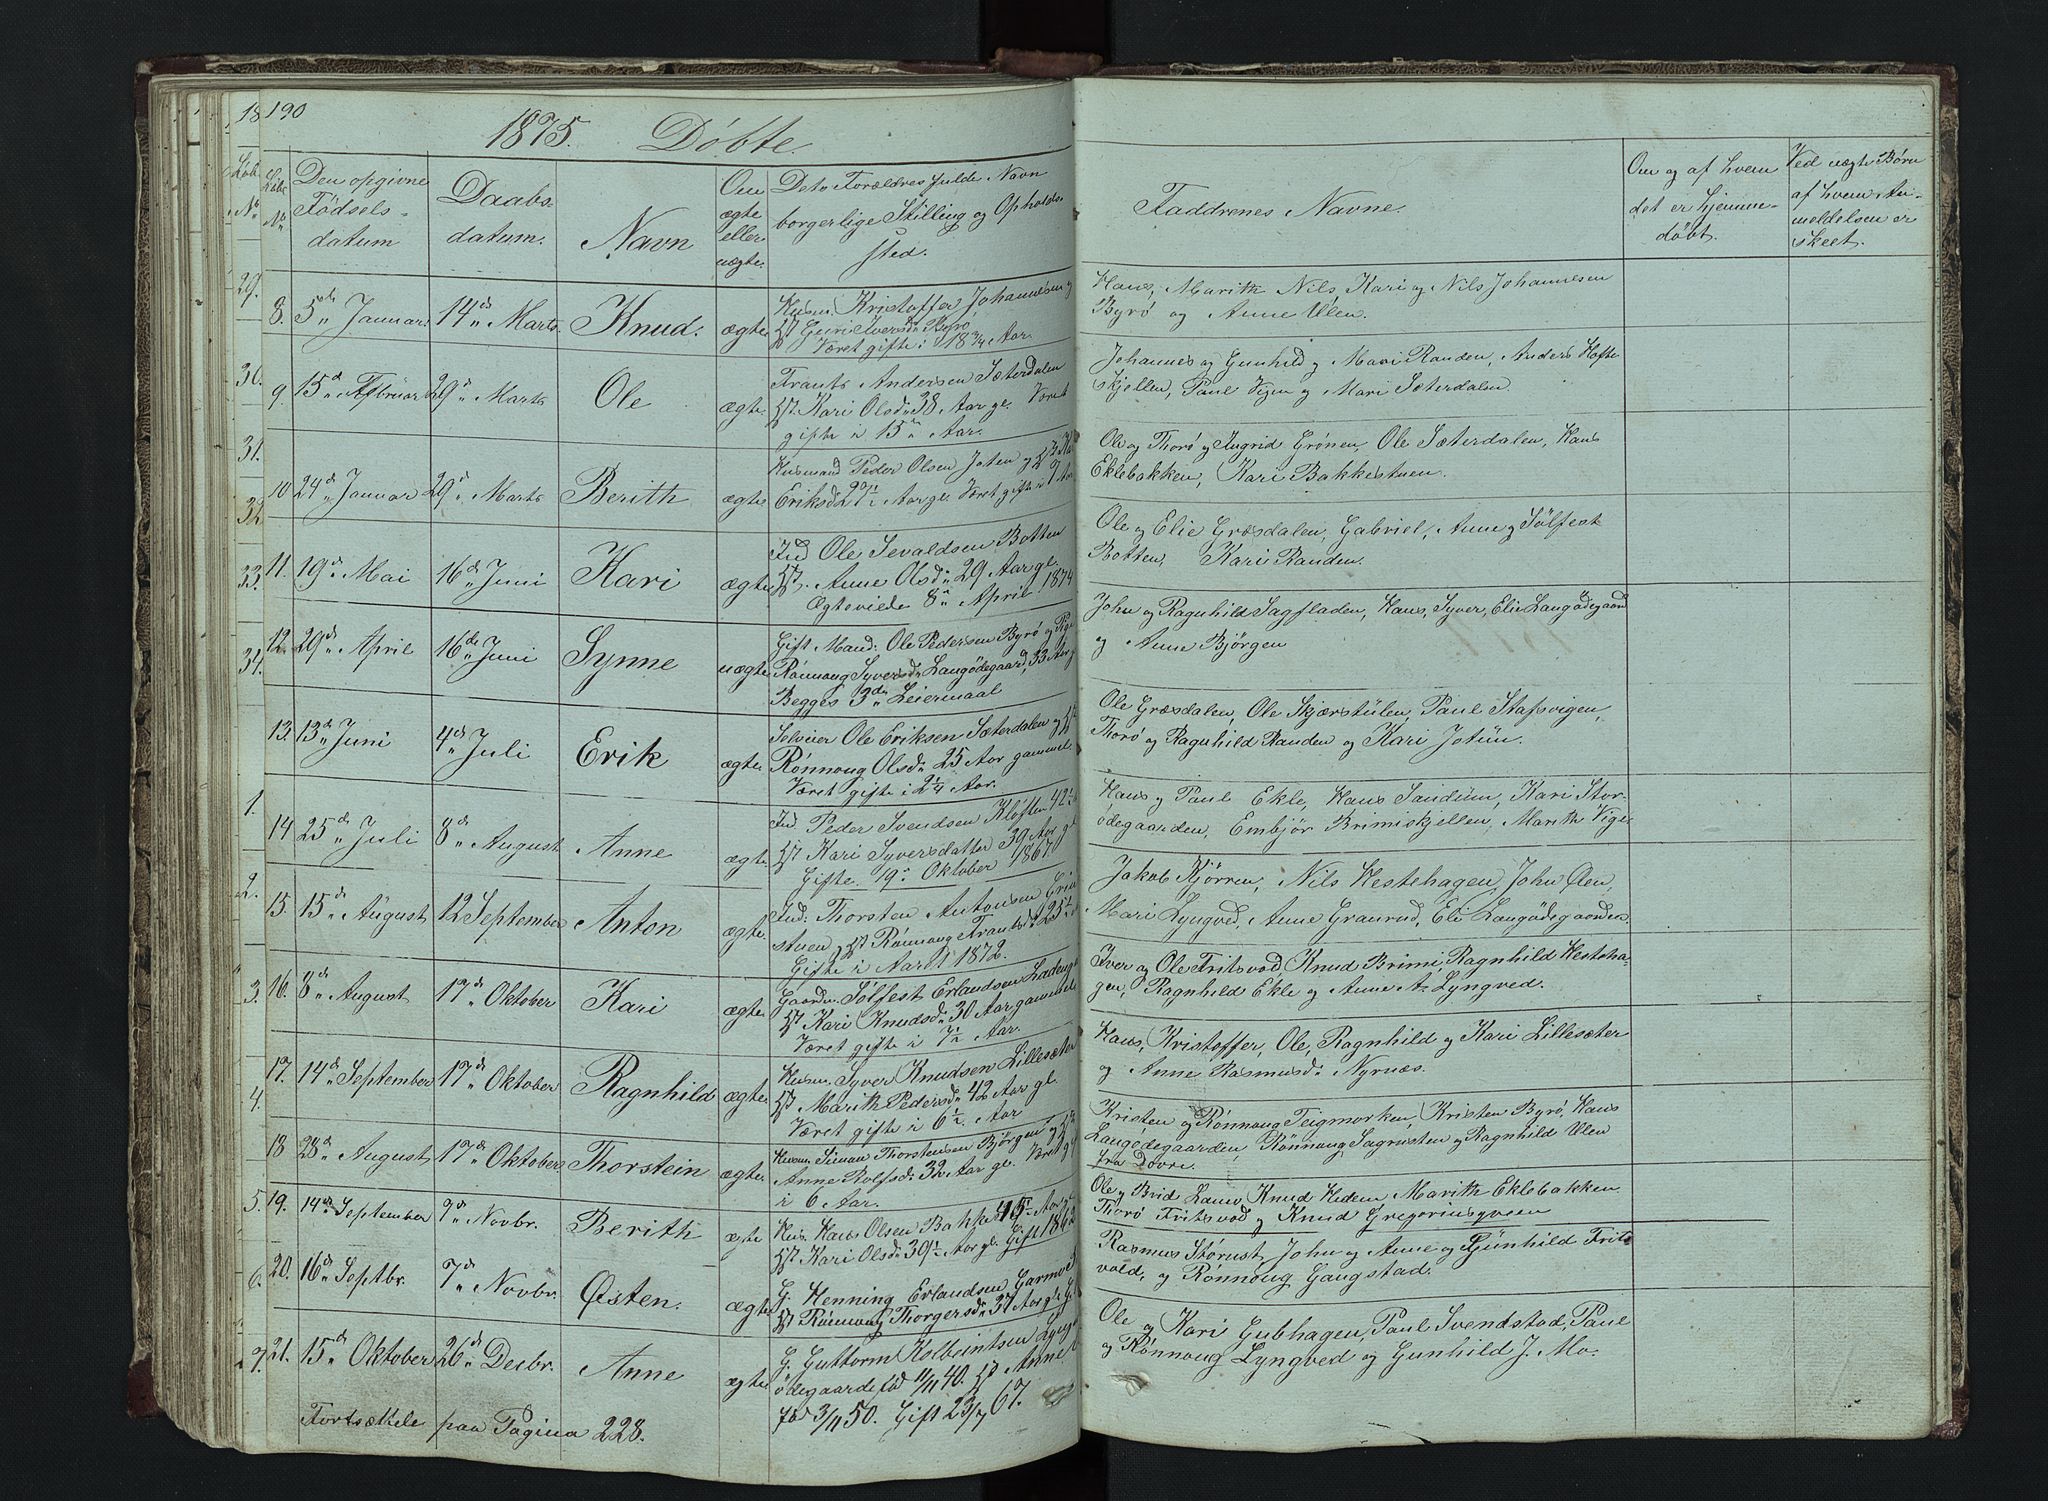 190
1875. Døbte.
Løbe No
Den opgivne Fødsels-datum
Daabs-datum.
Navn
Om ægte eller uægte.
Deto Forældres fulde Navn borgerlige Stilling og Opholds-sted.
Faddrenes Navne.
Om og af hvem det er hjemme-døbt.
Ved uægte Børn af hvem An-meldelsen er skeet.
8. 5d Januar. 14de Marts. Knud. ægte
Husm. Kristoffer Johannesen og
Guri Iversdr Byrø
Været gifte i 18 3/4 Aar.
Hans, Marith Nils, Kari og Nils Johannesen
Byrø og Anne Ulen.
9. 15d Februar 29d Marts Ole ægte.
Frants Andersen Sæterdalen
Kari Olsdr 38 Aar gl. Været
gifte i 15 Aar.
Johannes og Gunhild og Mari Randen, Anders Hofte-
skjellen, Paul Vigen og Mari Sæterdalen.
10 24d Januar 29d Marts Berith ægte
Husmand Peder Olsen Joten og
Eriksd. Aar gl. Været gifte i 9 Aar
Ole og Thorø og Ingrid Grønen, Ole Sæterdalen, Hans
Eklebakken, Kari Bakkestuen.
11. 19d Mai 16d Juni Kari ægte
Ind Ole Sevaldsen Botten
Anne Olsdr 29 Aar gl.
Ægteviede 8de April 1874
Ole og Elie Græsdalen, Gabriel, Anne og Sølfest
Botten, Kari Randen.
12. 29d April 16de Juni Synne uægte
Gift Mand: Ole Pedersen Byrø og Pige
Rønnoug Syversdr Langødegaard, 33 Aar gl
Begges 3de Leiermaal
John og Ragnhild Sagfladen, Hans, Syver, Elie Langødegaard
og Anne Bjørgen
13. 13d Juni 4d Juli Erik ægte.
Selveier Ole Eriksen Sæterdalen og
Rønnoug Olsdr 25 Aar gammel.
Været gifte i 2 1/4 Aar.
Ole Græsdalen, Ole Skjærstülen, Paul Stafsvigen,
Thorø og Ragnhild Randen og Kari Jotün.
14 25d Juli 8d August Anne ægte.
Ind. Peder Svendsen Kløften 42
Kari Syversdatter 39 Aar gl
Gifte 19. Oktober 1867.
Hans og Paul Ekle, Hans Sandüm, Kari Stor-
ødegaarden, Embjør Brimiskjellen, Marith Vigen
15. 15d August 12 September Anton ægte.
Ind: Thorsten Antonsen
stuen Rønnoug Frantsd. 25
Gifte i Aaret 1872.
Jakob Kjørren, Nils Hestehagen, John Øien,
Mari Lyngved, Anne Granrud, Eli Langødegaarden.
16. 8d August 17d Oktober Kari ægte.
Gaardm. Sølfest Erlandsen
Kari Knudsdr 30 Aar gammel
Været gifte i 7 1/2 Aar.
Iver og Ole Fritsvod, Knud Brimi, Ragnhild Hesteha-
gen, Ragnhild Ekle og Anne A. Lyngved.
17. 14d September 17d Oktober Ragnhild ægte.
Husm. Syver Knudsen Lillesæter
Marith Pedersdr 42 Aar gl.
Været gifte i 6 1/2 Aar
Hans, Kristoffer, Ole, Ragnhild og Kari Lillesæter
og Anne Rasmusdr Nyrnæs.
18 28d August 17d Oktober. Thorstein ægte
Husm. Simen Thorstensen Bjørgen og
Anne Rolfsdr 32 Aar gl. Været
i 6 Aar.
Kristen og Rønnoug Teigmorken, Kristen Byrø, Hans
Langedegaarden, Rønnoug Sagrusten og Ragnhild Ulen
fra Dovre.
19. 14d September 9d Novbr. Berith ægte
Hus. Hans Olsen 45 Aar
Kari Olsdr 39 1/2 Aar gl. Gift 1862
Ole og Brid Laurv, Knud Hedem Marith Eklebakken
Thorø Fritsvod og Knud
20. 16d Septbr. 7d Novbr. Østen. ægte
G. Henning Erlandsen Garmo
Rønnoug Thorgersdr 37 Aar gl
Rasmus Storust, John og Anne og Gunhild Frits
vold, og Rønnoug Gangstad.
21. 15d Oktober 26d Decbr. Anne ægte
G. Guttorm Kolbeintsen Lang
ødegaarde fød 11/11 40. Anne
fød 3/11 50. Gift 23/7 67.
Ole og Kari Gubhagen, Paul Svendstad, Paul
og Rønnoug Lyngved og Gunhild J. Mo.
Fortsættele paa Pagina 228.